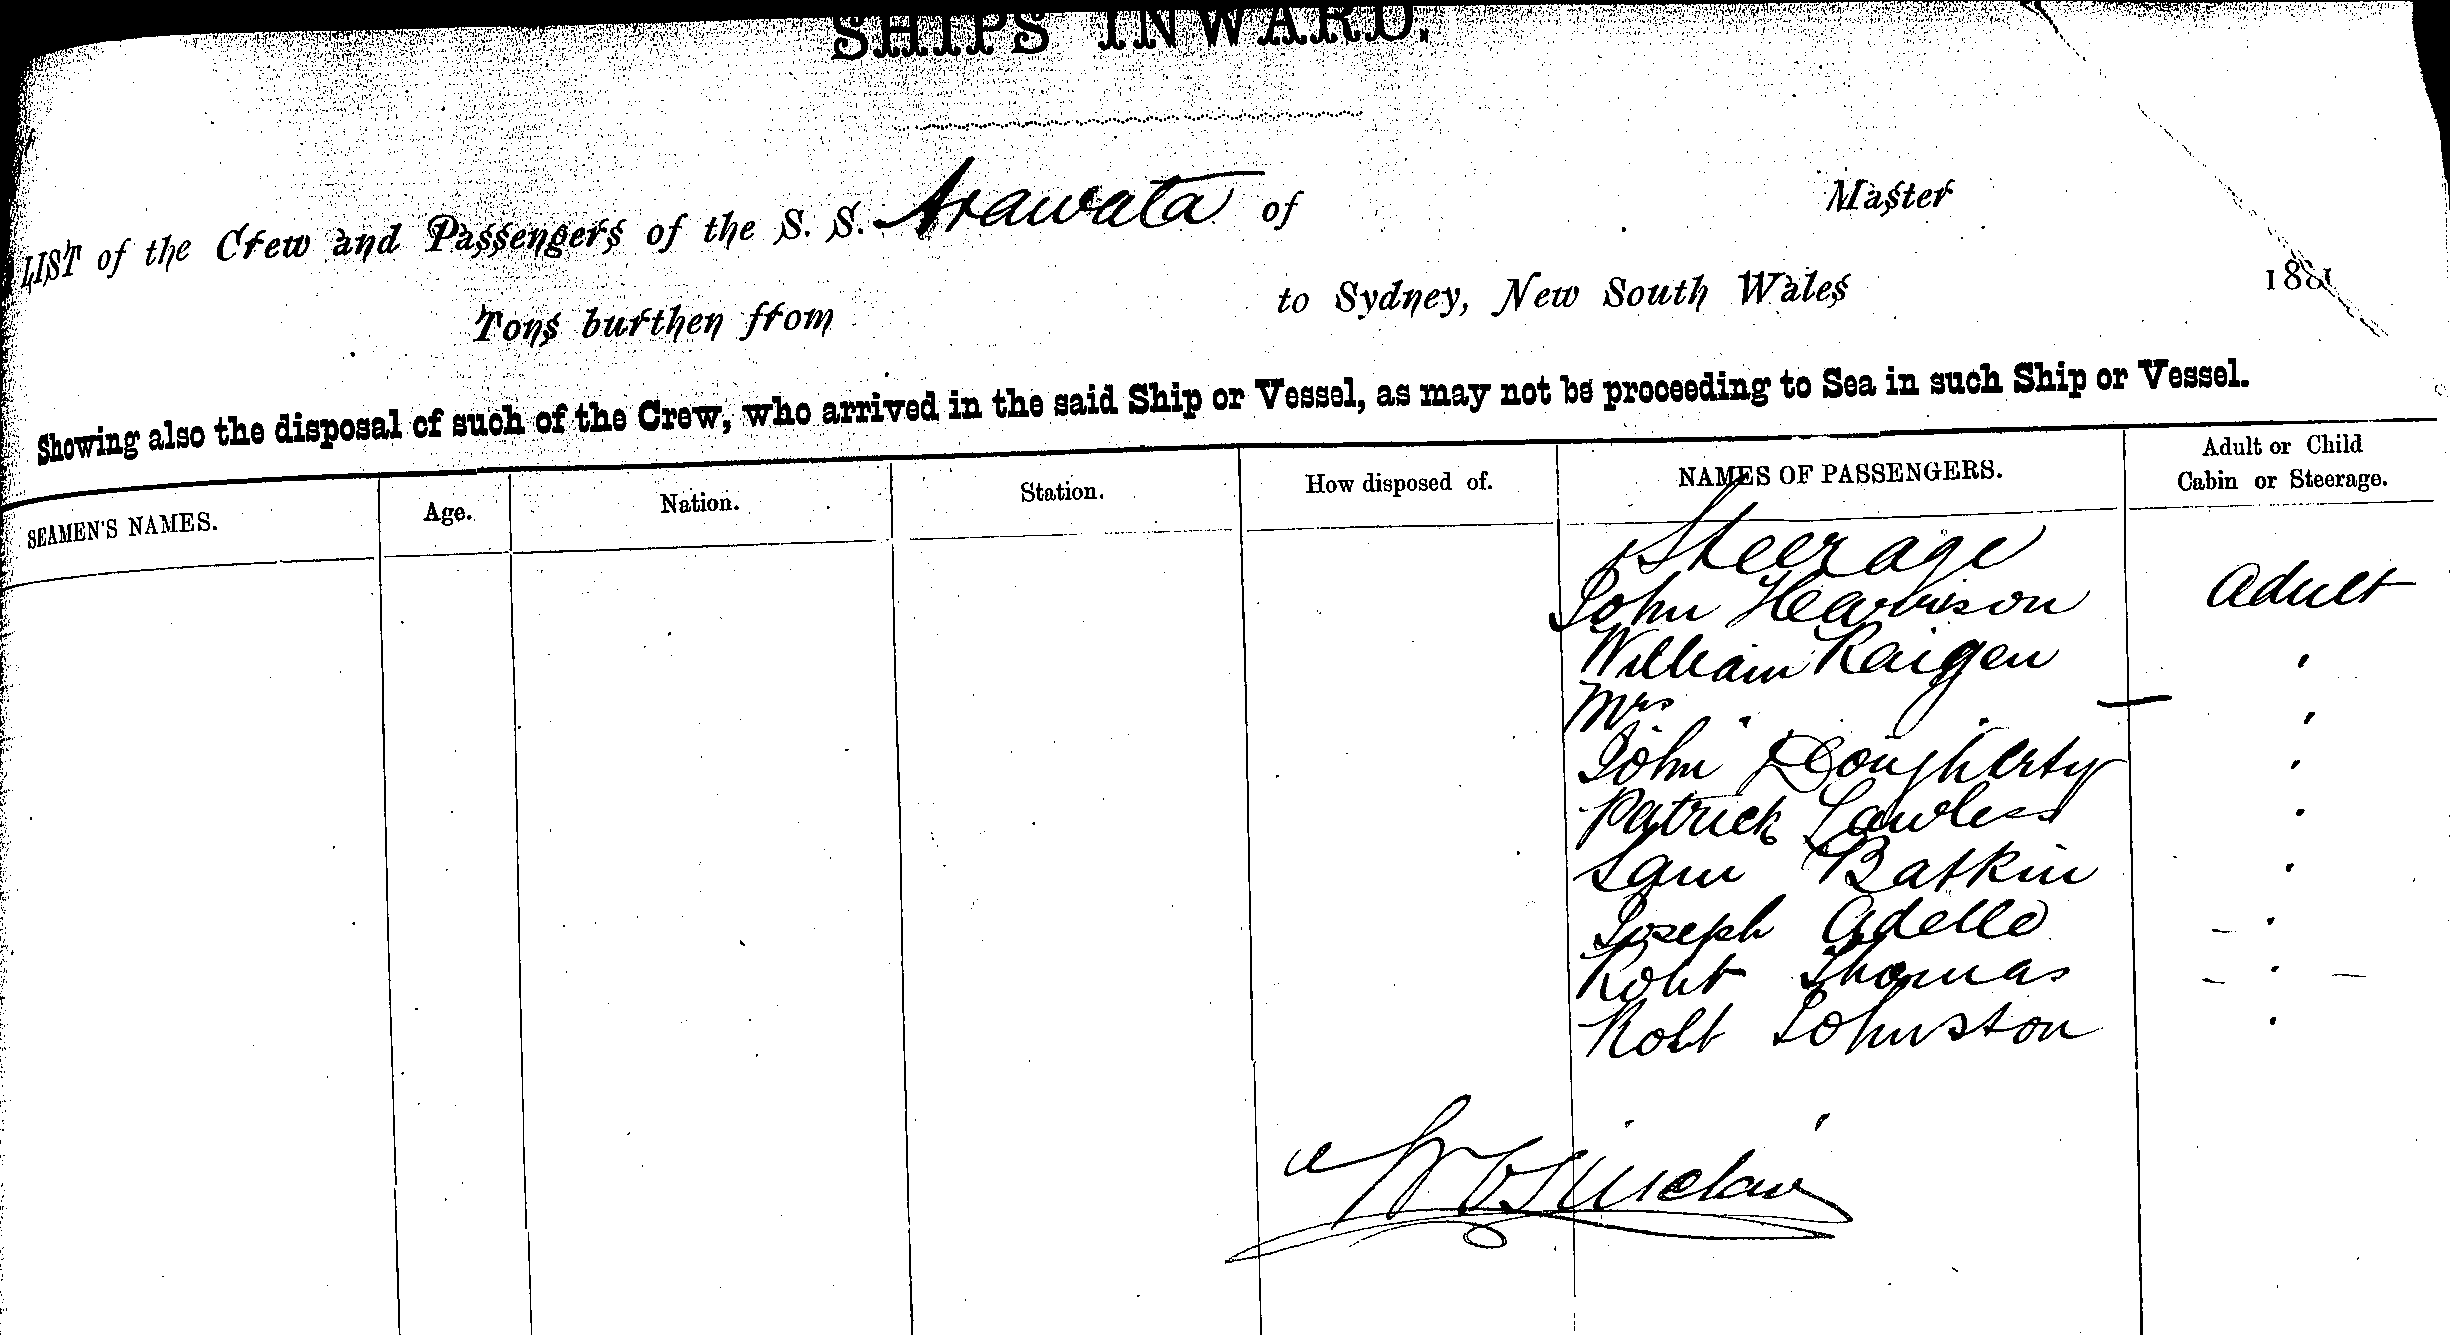 SHIPS INWARD.
LIST of the Crew and Passengers of the S. S. Arawata of Master
Tons burthen from to Sydney, New South Wales 1881
Showing also the disposal of such of the Crew, who arrived in the said Ship or Vessel, as may not be proceeding to Sea in such Ship or Vessel.
SEAMEN'S NAMES. Age. Nation. Station. How disposed of. NAMES OF PASSENGERS. Adult or Child
Cabin or Steerage.
Steerage
John Harrison Adult
William Raigen '
Mrs " " '
John Dougherty '
Patrick Lawless '
Sam Batkin '
Joseph Adello '
Robt Thomas - ' -
Robt Johnston '
Sinclair